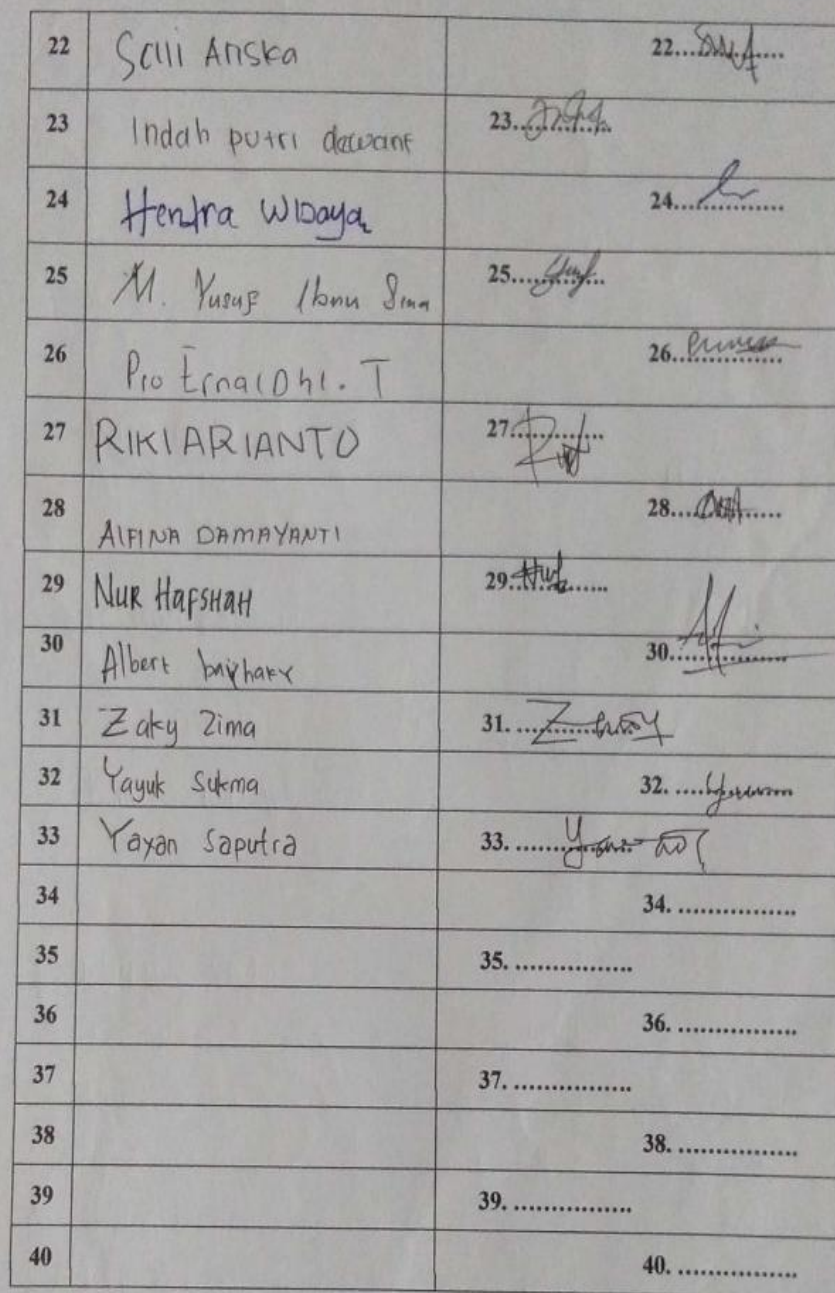 22 Salli Anska 22................
23 Indah putri dawant 23................
24 Hendra WIDaya 24................
25 M. Yusuf Ibnu Sina 25................
26 Pio Ernaldhi. T 26................
27 RIKI ARIANTO 27................
28 AlFINA DAMAYANTI 28................
29 NUR HAFSHAH 29................
30 Albert bayhaky 30................
31 Zaky Zima 31. ................
32 Yayuk Sukma 32. ................
33 Yayan Saputra 33. ................
34 34. ................
35 35. ................
36 36. ................
37 37. ................
38 38. ................
39 39. ................
40 40. ................